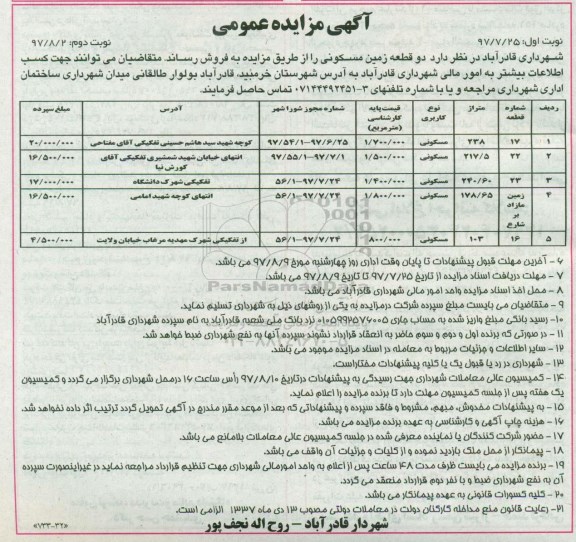 آگهی مزایده عمومی
نوبت اول: ۹۷/۷/۲۵ نوبت دوم: ۹۷/۸/۲
شهرداری قادرآباد در نظر دارد دو قطعه زمین مسکونی را از طریق مزایده به فروش رساند. متقاضیان می توانند جهت کسب
اطلاعات بیشتر به امور مالی شهرداری قادرآباد به آدرس شهرستان خرمبید، قادرآباد بولوار طالقانی میدان شهرداری ساختمان
اداری شهرداری مراجعه و یا با شماره تلفنهای ۳-۰۷۱۴۴۴۹۲۴۵۱ تماس حاصل فرمایند.
ردیف شماره قطعه متراژ نوع کاربری قیمت پایه کارشناسی (مترمربع) شماره مجوز شورا شهر آدرس مبلغ سپرده
۱ ۱۷ ۲۳۸ مسکونی ۱/۷۰۰/۰۰۰ ۹۷/۵۴/۱-۹۷/۶/۲۵ کوچه شهید سید هاشم حسینی تفکیکی آقای مفتاحی ۲۰/۰۰۰/۰۰۰
۲ ۲۲ ۲۱۷/۵ مسکونی ۱/۵۰۰/۰۰۰ ۹۷/۵۵/۱-۹۷/۷/۱ انتهای خیابان شهید شمشیری تفکیکی آقای کورش نیا ۱۶/۵۰۰/۰۰۰
۳ ۲۳ ۲۴۰/۶۰ مسکونی ۱/۴۰۰/۰۰۰ ۵۶/۱-۹۷/۷/۲۴ تفکیکی شهرک دانشگاه ۱۷/۰۰۰/۰۰۰
۴ زمین مازاد بر شارع ۱۷۸/۶۵ مسکونی ۱/۸۰۰/۰۰۰ ۵۶/۱-۹۷/۷/۲۴ انتهای کوچه شهید امامی ۱۶/۵۰۰/۰۰۰
۵ ۱۶ ۱۰۳ مسکونی ۸۰۰/۰۰۰ ۵۶/۱-۹۷/۷/۲۴ از تفکیکی شهرک مهدیه مرغاب خیابان ولایت ۴/۵۰۰/۰۰۰
۶- آخرین مهلت قبول پیشنهادات تا پایان وقت اداری روز چهارشنبه مورخ ۹۷/۸/۹ می باشد.
۷- مهلت دریافت اسناد مزایده از تاریخ ۹۷/۷/۲۵ تا تاریخ ۹۷/۸/۹ می باشد.
۸- محل اخذ اسناد مزایده واحد امور مالی شهرداری قادرآباد می باشد.
۹- متقاضیان می بایست مبلغ سپرده شرکت درمزایده به یکی از روشهای ذیل به شهرداری تسلیم نماید.
۱۰- رسید بانکی مبلغ واریز شده به حساب جاری ۰۱۰۵۹۹۲۵۷۶۰۰۵ نزد بانک ملی شعبه قادرآباد به نام سپرده شهرداری قادرآباد
۱۱- در صورتی که برنده اول و دوم و سوم حاضر به انعقاد قرارداد نشوند سپرده آنها به نفع شهرداری ضبط خواهد شد.
۱۲- سایر اطلاعات و جزئیات مربوط به معامله در اسناد مزایده موجود می باشد.
۱۳- شهرداری در رد یا قبول یک یا کلیه پیشنهادات مختاراست.
۱۴- کمیسیون عالی معاملات شهرداری جهت رسیدگی به پیشنهادات درتاریخ ۹۷/۸/۱۰ رأس ساعت ۱۶ درمحل شهرداری برگزار می گردد و کمیسیون
یک هفته پس از جلسه کمیسیون مهلت دارد تا برنده مزایده را اعلام نماید.
۱۵- به پیشنهادات مخدوش، مبهم، مشروط و فاقد سپرده و پیشنهاداتی که بعد از موعد مقرر مندرج در آگهی تحویل گردد ترتیب اثر داده نخواهد شد.
۱۶- هزینه چاپ آگهی و کارشناسی به عهده برنده مزایده می باشد.
۱۷- حضور شرکت کنندگان یا نماینده معرفی شده در جلسه کمیسیون عالی معاملات بلامانع می باشد.
۱۸- پیمانکار از محل ملک بازدید نموده و از کلیات و جزئیات آن واقف می باشد.
۱۹- برنده مزایده می بایست ظرف مدت ۴۸ ساعت پس از اعلام به واحد امورمالی شهرداری جهت تنظیم قرارداد مراجعه نماید در غیراینصورت سپرده
آن به نفع شهرداری ضبط و با نفر دوم قرارداد منعقد می گردد.
۲۰- کلیه کسورات قانونی به عهده پیمانکار می باشد.
۲۱- رعایت قانون منع مداخله کارکنان دولت در معاملات دولتی مصوب ۱۳ دی ماه ۱۳۳۷ الزامی است.
شهردار قادرآباد - روح اله نجف پور
«۷۳۳-۳۲»